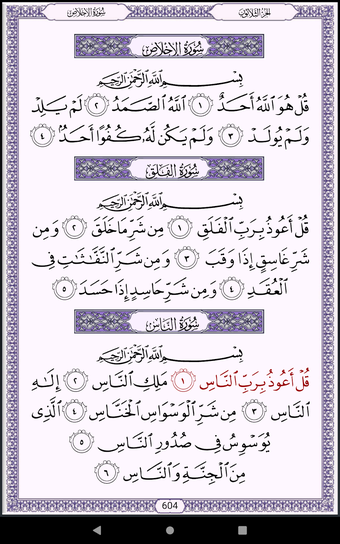 سُورَةُ الإِخْلَاصِ الجُزْءُ الثَّلَاثُونَ
سُورَةُ الإِخْلَاصِ
بِسْمِ اللَّهِ الرَّحْمَٰنِ الرَّحِيمِ
قُلْ هُوَ اللَّهُ أَحَدٌ ١ اللَّهُ الصَّمَدُ ٢ لَمْ يَلِدْ
وَلَمْ يُولَدْ ٣ وَلَمْ يَكُن لَّهُ كُفُوًا أَحَدٌ ٤
سُورَةُ الفَلَقِ
بِسْمِ اللَّهِ الرَّحْمَٰنِ الرَّحِيمِ
قُلْ أَعُوذُ بِرَبِّ الْفَلَقِ ١ مِن شَرِّ مَا خَلَقَ ٢ وَمِن
شَرِّ غَاسِقٍ إِذَا وَقَبَ ٣ وَمِن شَرِّ النَّفَّاثَاتِ فِي
الْعُقَدِ ٤ وَمِن شَرِّ حَاسِدٍ إِذَا حَسَدَ ٥
سُورَةُ النَّاسِ
بِسْمِ اللَّهِ الرَّحْمَٰنِ الرَّحِيمِ
قُلْ أَعُوذُ بِرَبِّ النَّاسِ ١ مَلِكِ النَّاسِ ٢ إِلَٰهِ
النَّاسِ ٣ مِن شَرِّ الْوَسْوَاسِ الْخَنَّاسِ ٤ الَّذِي
يُوَسْوِسُ فِي صُدُورِ النَّاسِ ٥
مِنَ الْجِنَّةِ وَالنَّاسِ ٦
604